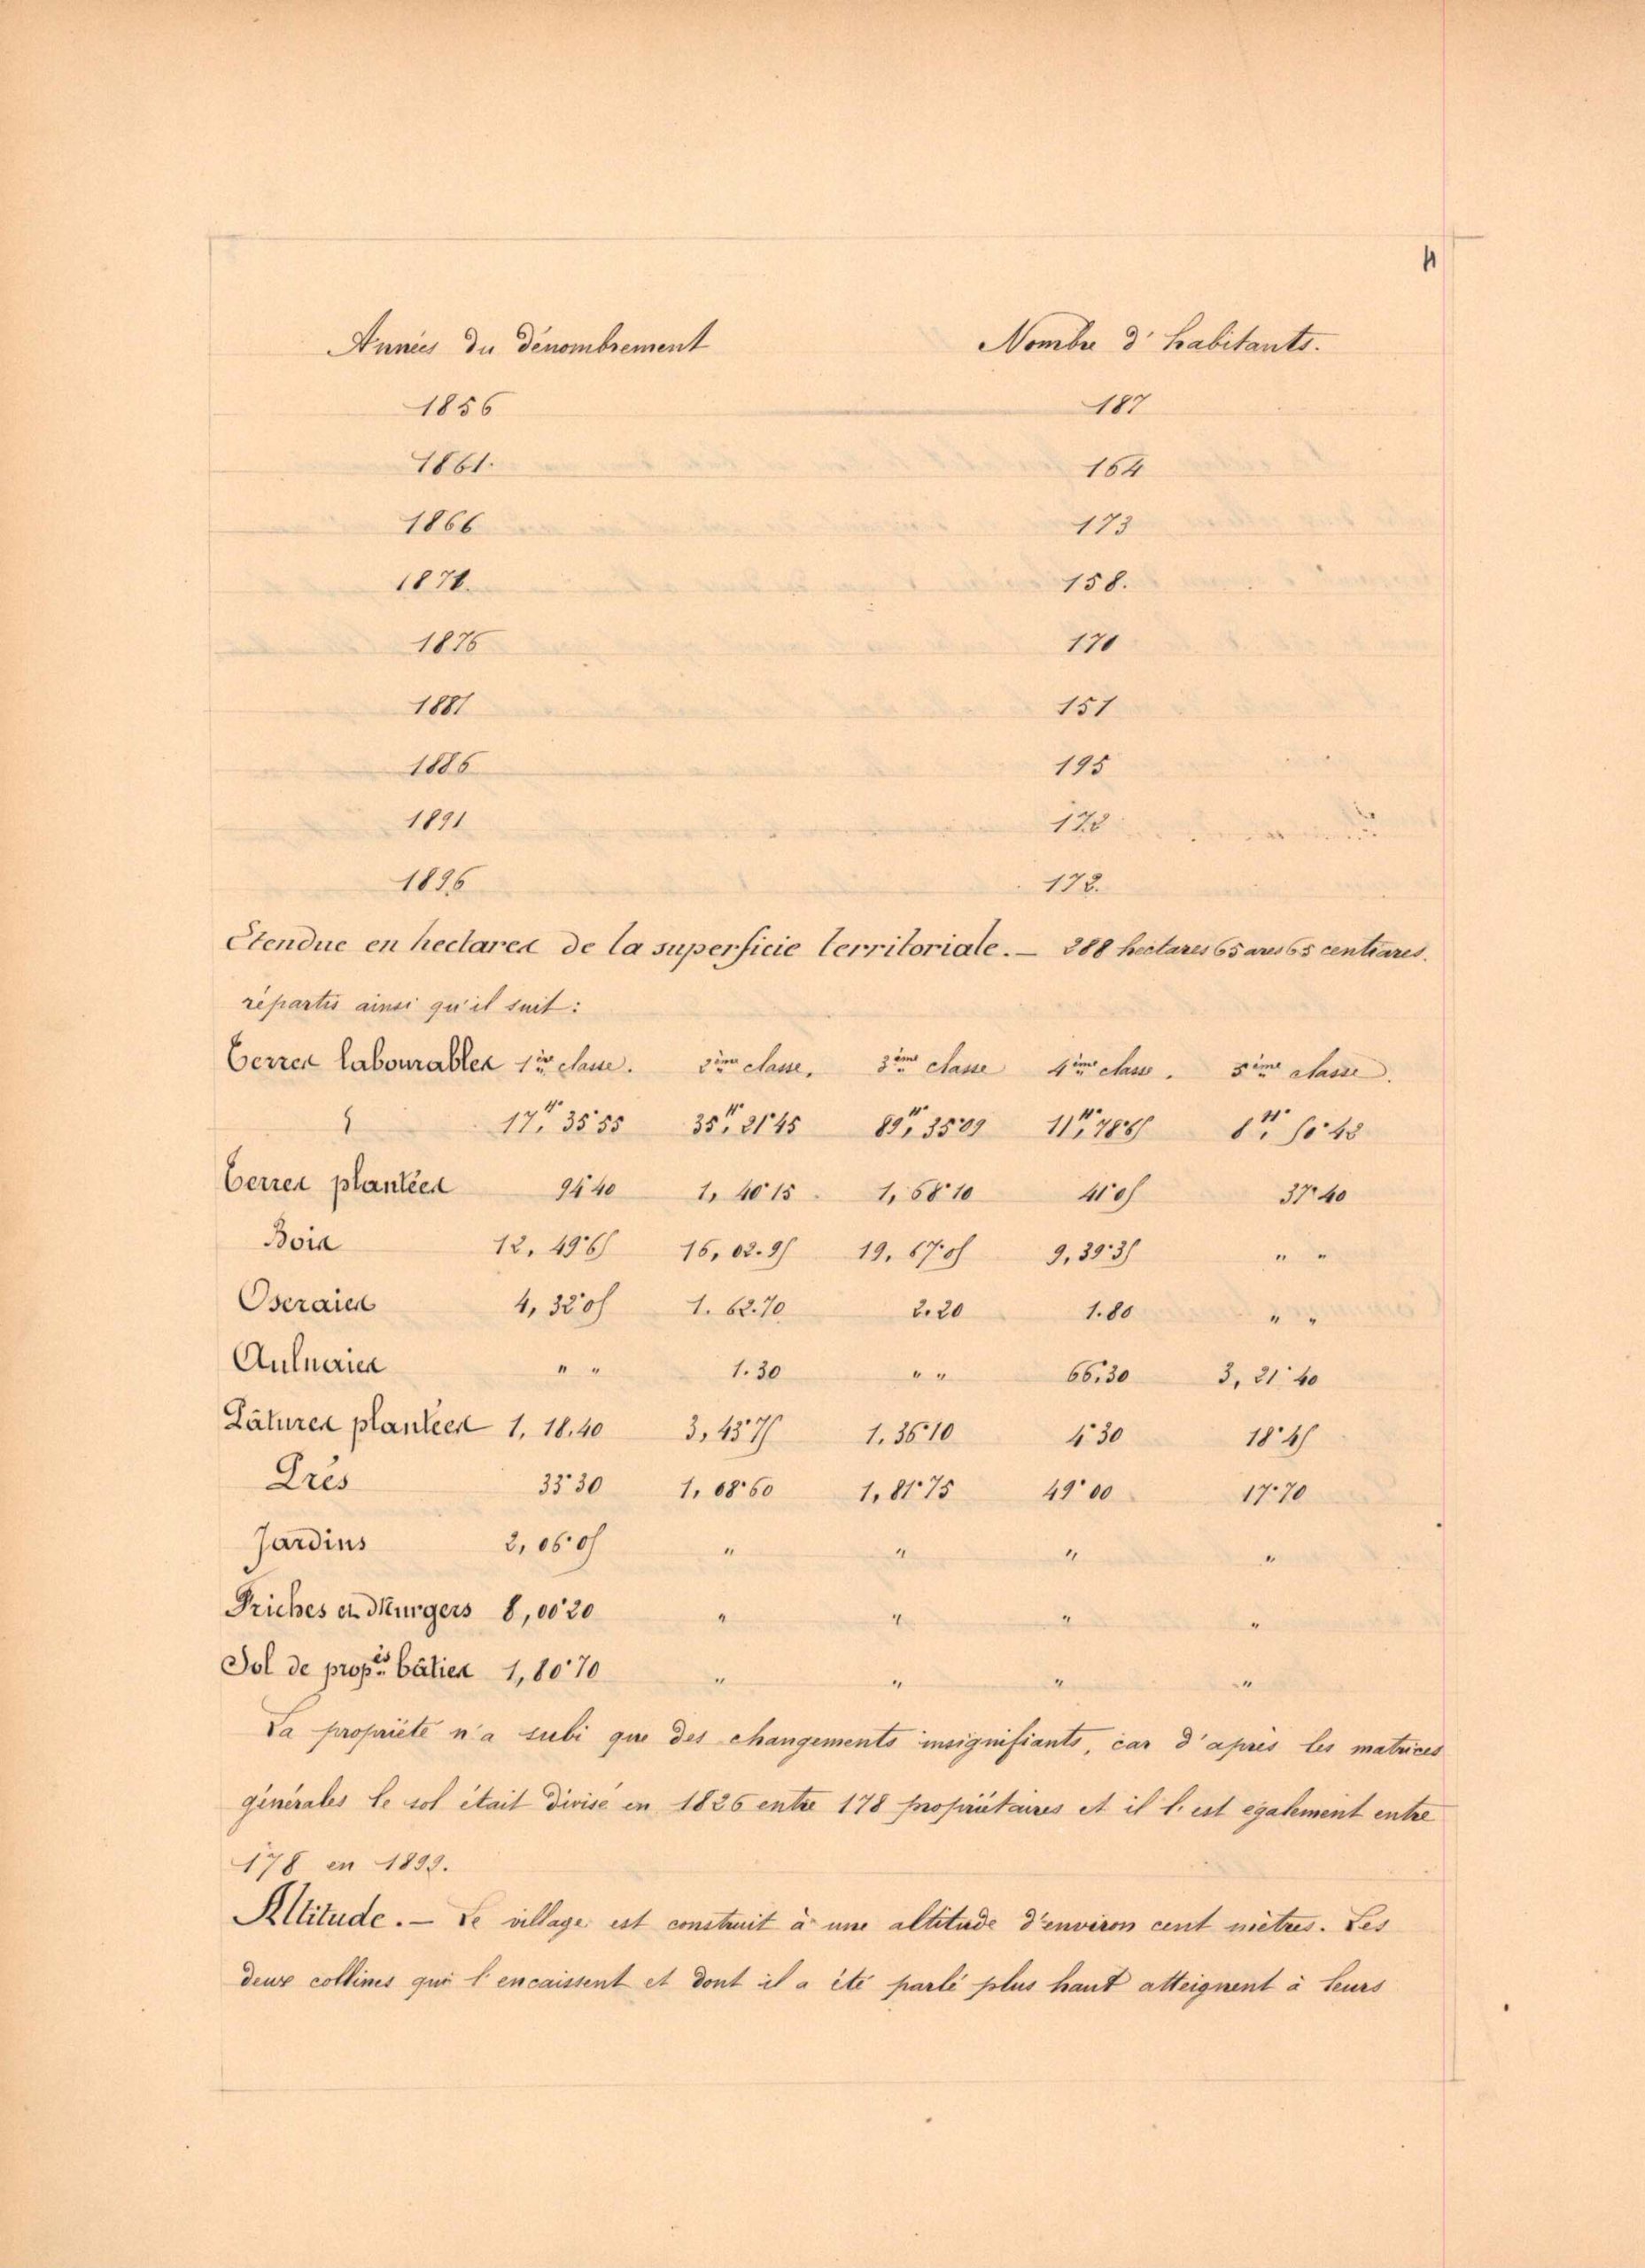 4
Années du dénombrement Nombre d'habitants.
1856 187
1861. 164
1866 173
187 158.
1876 170
1881 151
1886 195
1891 172
1896 172.
Étendue en hectares de la superficie territoriale. — 288 hectares 65 ares 65 centiares.
répartis ainsi qu'il suit :
Terres labourables 1ère classe. 2ème classe. 3ème classe 4ème classe. 5ème classe.
17H, 35.55 35H, 21.45 89H, 35.09 11H, 78.
Terres plantées 94.40 1, 40.15. 1, 68.10 41.05 37.40
Bois 12, 49.65 16, 02.95 19, 67.05 9, 39.35 " "
Oseraies 4, 32.05 1. 62.70 2.20 1.80 " "
Aulnaies " " 1.30 " " 66.30 3, 21.40
Pâtures plantées 1, 18.40 3, 43.75 1. 36.10 4.30 18.45
Prés 33.30 1, 08.60 1, 81.75 49.00 17.70
Jardins 2, 06.05 " " " "
Friches et Murgers 8, 00.20 " " " "
Sol de propés bâties 1, 80.70 " " " "
La propriété n'a subi que des changements insignifiants, car d'après les matrices
générales le sol était divisé en 1826 entre 178 propriétaires et il l'est également entre
178 en 1899.
Altitude. — Le village est construit à une altitude d'environ cent mètres. Les
deux collines qui l'encaissent et dont il a été parlé plus haut atteignent à leurs